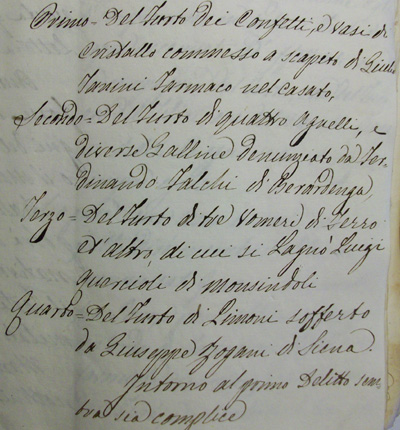 Primo = Del Furto dei Confetti, e vasi di
Cristallo commesso a scapito di Giulio
Janini Farmaco nel casato,
Secondo = Del Furto di quattro agnelli, e
diverse Galline denunziato da Fer-
dinando Falchi di Berardenga,
Terzo = Del Furto di tre vomeri di Ferro
et altro, di cui si Lagnò Luigi
Quercioli di Monsindoli
Quarto = Del Furto di Limoni sofferto
da Giuseppe Zogani di Siena.
Intorno al primo Delitto sem-
bra sia complice